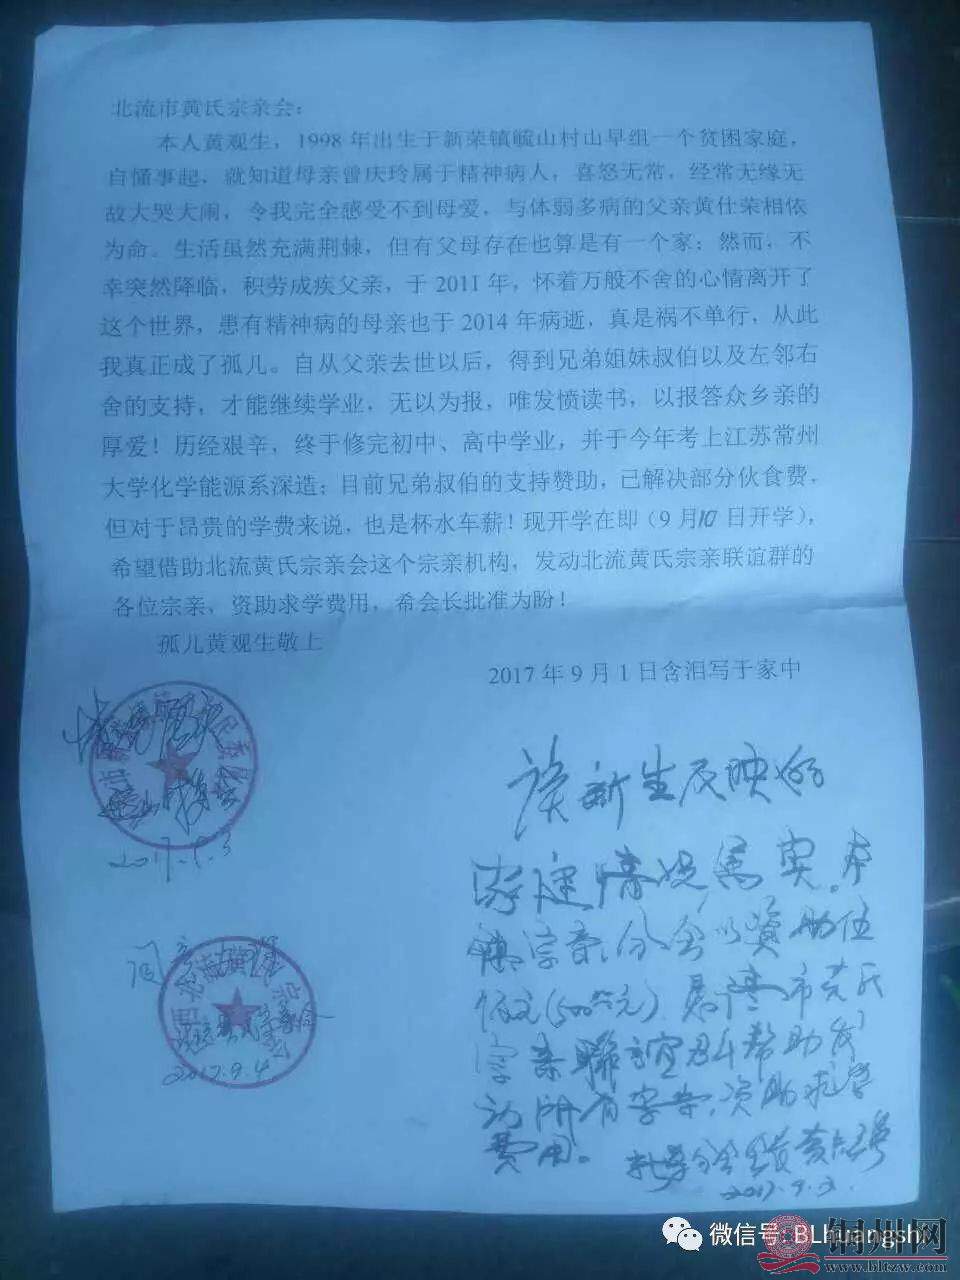 北流市黄氏宗亲会：
本人黄观生，1998年出生于新荣镇毓山村山早组一个贫困家庭，
自懂事起，就知道母亲曾庆玲属于精神病人，喜怒无常，经常无缘无
故大哭大闹，令我完全感受不到母爱，与体弱多病的父亲黄仕荣相依
为命。生活虽然充满荆棘，但有父母存在也算是有一个家；然而，不
幸突然降临，积劳成疾父亲，于2011年，怀着万般不舍的心情离开了
这个世界，患有精神病的母亲也于2014年病逝，真是祸不单行，从此
我真正成了孤儿。自从父亲去世以后，得到兄弟姐妹叔伯以及左邻右
舍的支持，才能继续学业，无以为报，唯发愤读书，以报答众乡亲的
厚爱！历经艰辛，终于修完初中、高中学业，并于今年考上江苏常州
大学化学能源系深造；目前兄弟叔伯的支持赞助，已解决部分伙食费，
但对于昂贵的学费来说，也是杯水车薪！现开学在即（9月10日开学），
希望借助北流黄氏宗亲会这个宗亲机构，发动北流黄氏宗亲联谊群的
各位宗亲，资助求学费用，希会长批准为盼！
孤儿黄观生敬上
2017年9月1日含泪写于家中
2017.9.3
2017.9.4
该新生反映的
家庭情况属实。本
镇宗亲分会以资助伍
佰元(500元)
市黄氏
宗亲聯誼群帮助发
动所有宗亲，资助求学
费用。
2017.9.3.
微信号: BLhuangshi
铜州网
www.bltzw.com